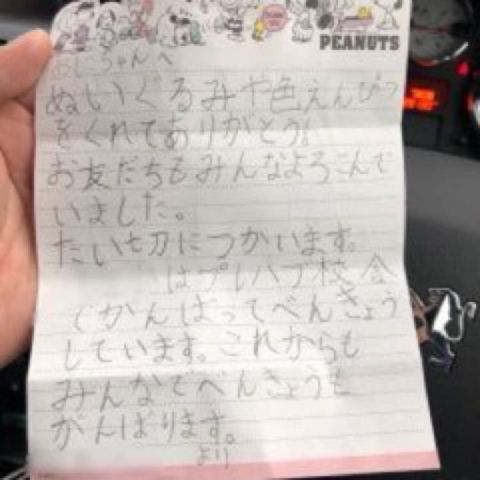 PEANUTS
じいちゃんへ
ぬいぐるみや色えんぴつ
をくれてありがとう!
お友だちもみんなよろこんで
いました。
たい切につかいます。
はプレハブ校舎
でがんばってべんきょう
しています。これからも
みんなでべんきょうも
がんばります。
より